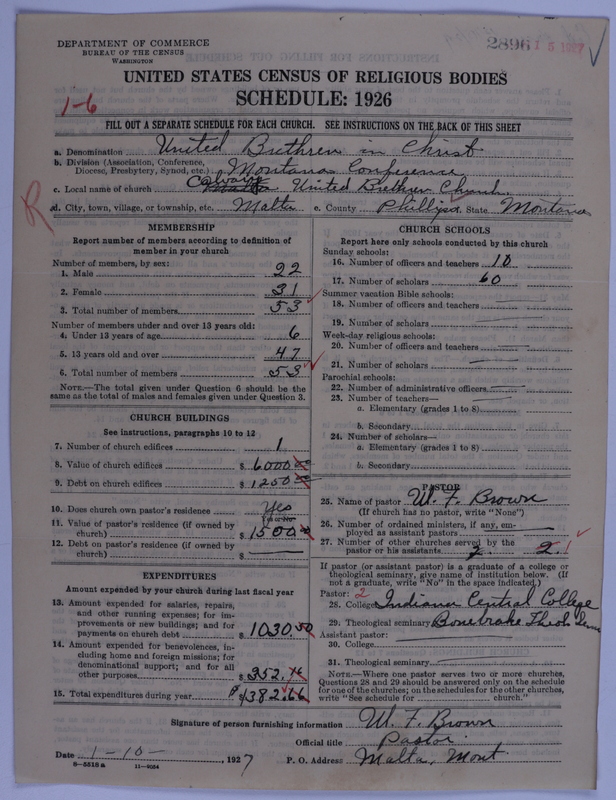 DEPARTMENT OF COMMERCE
BUREAU OF THE CENSUS
WASHINGTON
2896 1 5 1927
UNITED STATES CENSUS OF RELIGIOUS BODIES
SCHEDULE: 1926
1-6
FILL OUT A SEPARATE SCHEDULE FOR EACH CHURCH. SEE INSTRUCTIONS ON THE BACK OF THIS SHEET
a. Denomination United Brethren in Christ
b. Division (Association, Conference, Diocese, Presbytery, Synod, etc.) Montana Conference
c. Local name of church Calvary Malta United Brethren Church
d. City, town, village, or township, etc. Malta e. County Phillips State Montana
R
MEMBERSHIP
Report number of members according to definition of member in your church
Number of members, by sex:
1. Male 22
2. Female 31
3. Total number of members 53
Number of members under and over 13 years old:
4. Under 13 years of age 6
5. 13 years old and over 47
6. Total number of members 53
NOTE.—The total given under Question 6 should be the same as the total of males and females given under Question 3.
CHURCH BUILDINGS
See instructions, paragraphs 10 to 12
7. Number of church edifices 1
8. Value of church edifices $ 6000.00
9. Debt on church edifices $ 1250.00
10. Does church own pastor's residence yes
(Yes or No)
11. Value of pastor's residence (if owned by church) $ 1500
12. Debt on pastor's residence (if owned by church) $
EXPENDITURES
Amount expended by your church during last fiscal year
13. Amount expended for salaries, repairs, and other running expenses; for improvements or new buildings; and for payments on church debt $ 1030.50
14. Amount expended for benevolences, including home and foreign missions; for denominational support; and for all other purposes $ 352.16
15. Total expenditures during year $ 1382.66
CHURCH SCHOOLS
Report here only schools conducted by this church
Sunday schools:
16. Number of officers and teachers 10
17. Number of scholars 60
Summer vacation Bible schools:
18. Number of officers and teachers
19. Number of scholars
Week-day religious schools:
20. Number of officers and teachers
21. Number of scholars
Parochial schools:
22. Number of administrative officers
23. Number of teachers—
a. Elementary (grades 1 to 8)
b. Secondary
24. Number of scholars—
a. Elementary (grades 1 to 8)
b. Secondary
PASTOR
25. Name of pastor W. F. Brown
(If church has no pastor, write "None")
26. Number of ordained ministers, if any, employed as assistant pastors
27. Number of other churches served by the pastor or his assistants 2 2 1
If pastor (or assistant pastor) is a graduate of a college or theological seminary, give name of institution below. (If not a graduate, write "No" in the space indicated.)
Pastor: 2
28. College Indiana Central College
29. Theological seminary Bonebrake Theol. Sem
Assistant pastor:
30. College
31. Theological seminary
NOTE.—Where one pastor serves two or more churches, Questions 28 and 29 should be answered only on the schedule for one of the churches; on the schedules for the other churches, write "See schedule for church."
Signature of person furnishing information W. F. Brown
Official title Pastor
Date 1-10-, 1927 P. O. Address Malta, Mont
8-5518 a 11-9034